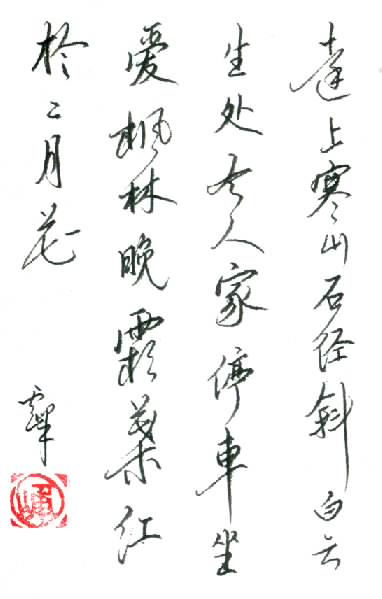 遠上寒山石径斜白云
生处有人家停車坐
爱楓林晚霜葉红
於二月花